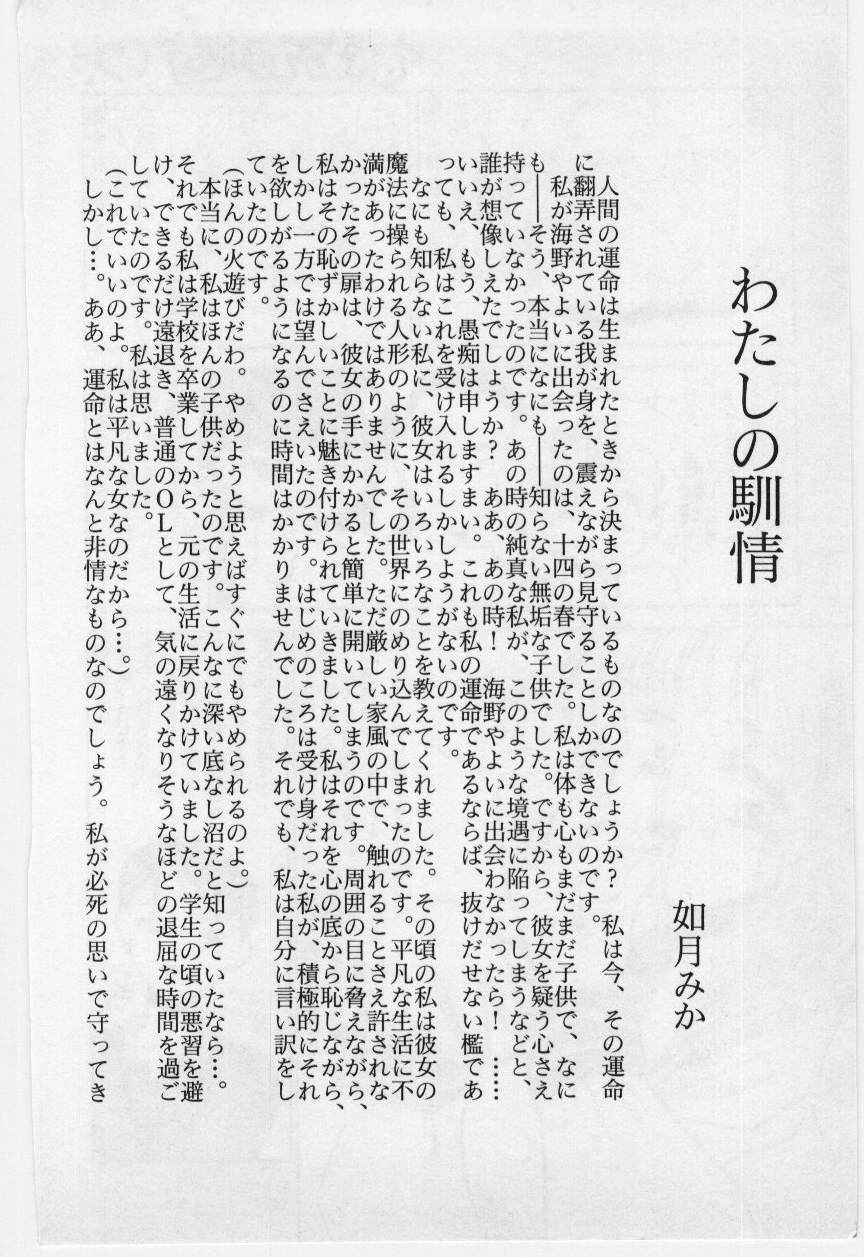 わたしの馴情
如月みか
人間の運命は生まれたときから決まっているものなのでしょうか? 私は今、その運命
に翻弄されている我が身を、震えながら見守ることしかできないのです。
私が海野やよいに出会ったのは、十四の春でした。私は体も心もまだまだ子供で、なに
も――そう、本当になにも――知らない無垢な子供でした。ですから、彼女を疑う心さえ
持っていなかったのです。あの時の純真な私が、このような境遇に陥ってしまうなどと、
誰が想像しえたでしょうか? ああ、あの時! 海野やよいに出会わなかったら! ……
いいえ、もう、愚痴は申しますまい。これも私の運命であるならば、抜けだせない檻であ
っても、私はこれを受け入れるしかしようがないのです。
なにも知らない私に、彼女はいろいろなことを教えてくれました。その頃の私は彼女の
魔法に操られる人形のように、その世界にのめり込んでしまったのです。平凡な生活に不
満があったわけではありませんでした。ただ厳しい家風の中で、触れることさえ許されな
かったその扉は、彼女の手にかかると簡単に開いてしまうのです。周囲の目に脅えながら、
私はその恥ずかしいことに魅き付けられていきました。私はそれを心の底から恥じながら、
しかし一方では望んでさえいたのです。はじめのころは受け身だった私が、積極的にそれ
を欲しがるようになるのに時間はかかりませんでした。それでも、私は自分に言い訳をし
ていたのです。
(ほんの火遊びだわ。やめようと思えばすぐにでもやめられるのよ。)
本当に、私はほんの子供だったのです。こんなに深い底なし沼だと知っていたなら…。
それでも私は学校を卒業してから、元の生活に戻りかけていました。学生の頃の悪習を避
け、できるだけ遠退き、普通のOLとして、気の遠くなりそうなほどの退屈な時間を過ご
していたのです。私は思いました。
(これでいいのよ。私は平凡な女なのだから…。)
しかし…。ああ、運命とはなんと非情なものなのでしょう。私が必死の思いで守ってき